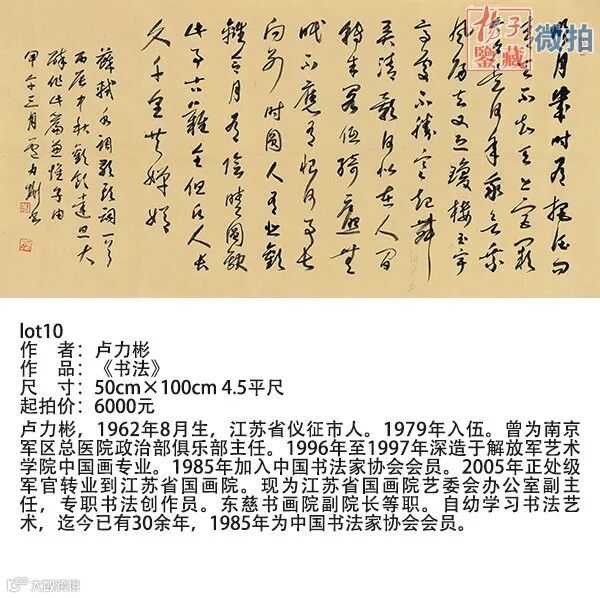 扬子
鉴藏
微拍
明月几时有把酒问
青天不知天上宫阙
今夕是何年我欲乘
风归去又恐琼楼玉宇
高处不胜寒起舞
弄清影何似在人间
转朱阁低绮户照无
眠不应有恨何事长
向别时圆人有悲欢
离合月有阴晴圆缺
此事古难全但愿人长
久千里共婵娟
苏轼水调歌头词一首
丙辰中秋欢饮达旦大
醉作此篇兼怀子由
甲午三月卢力彬书
lot10
作 者：卢力彬
作 品：《书法》
尺 寸：50cm×100cm 4.5平尺
起拍价：6000元
卢力彬，1962年8月生，江苏省仪征市人。1979年入伍。曾为南京
军区总医院政治部俱乐部主任。1996年至1997年深造于解放军艺术
学院中国画专业。1985年加入中国书法家协会会员。2005年正处级
军官转业到江苏省国画院。现为江苏省国画院艺委会办公室副主
任，专职书法创作员。东慈书画院副院长等职。自幼学习书法艺
术，迄今已有30余年，1985年为中国书法家协会会员。
大数跨境